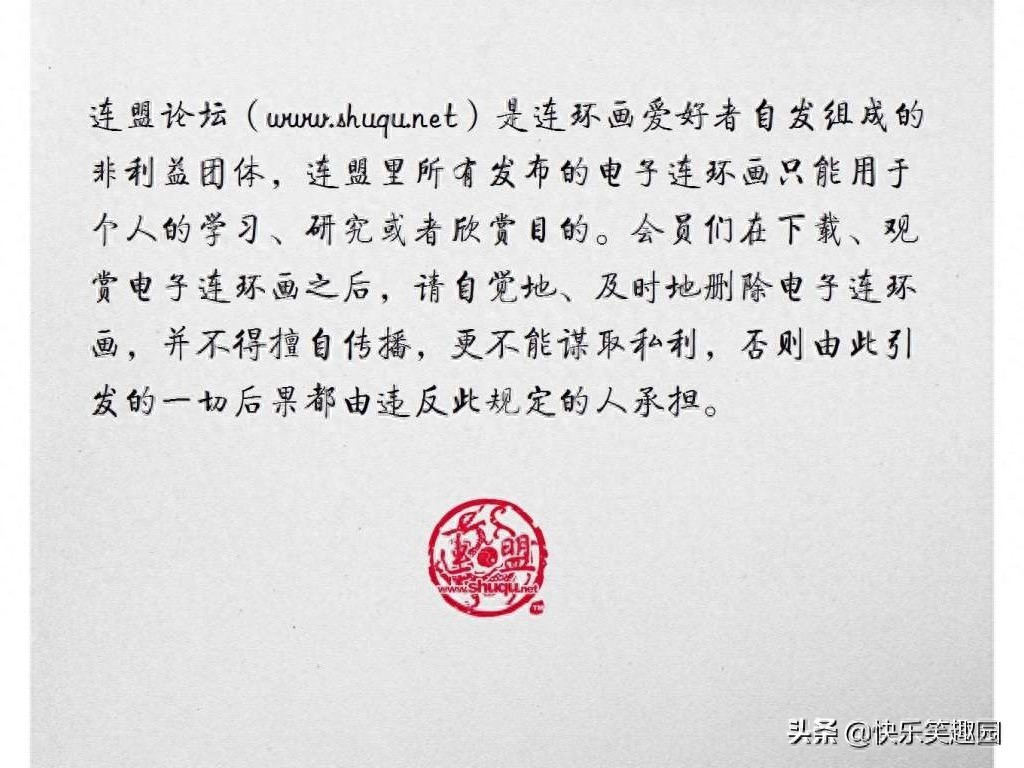 连盟论坛（www.shuqu.net）是连环画爱好者自发组成的
非利益团体，连盟里所有发布的电子连环画只能用于
个人的学习、研究或者欣赏目的。会员们在下载、观
赏电子连环画之后，请自觉地、及时地删除电子连环
画，并不得擅自传播，更不能谋取私利，否则由此引
发的一切后果都由违反此规定的人承担。
連盟
www.shuqu.net
TM
头条 @快乐笑趣园